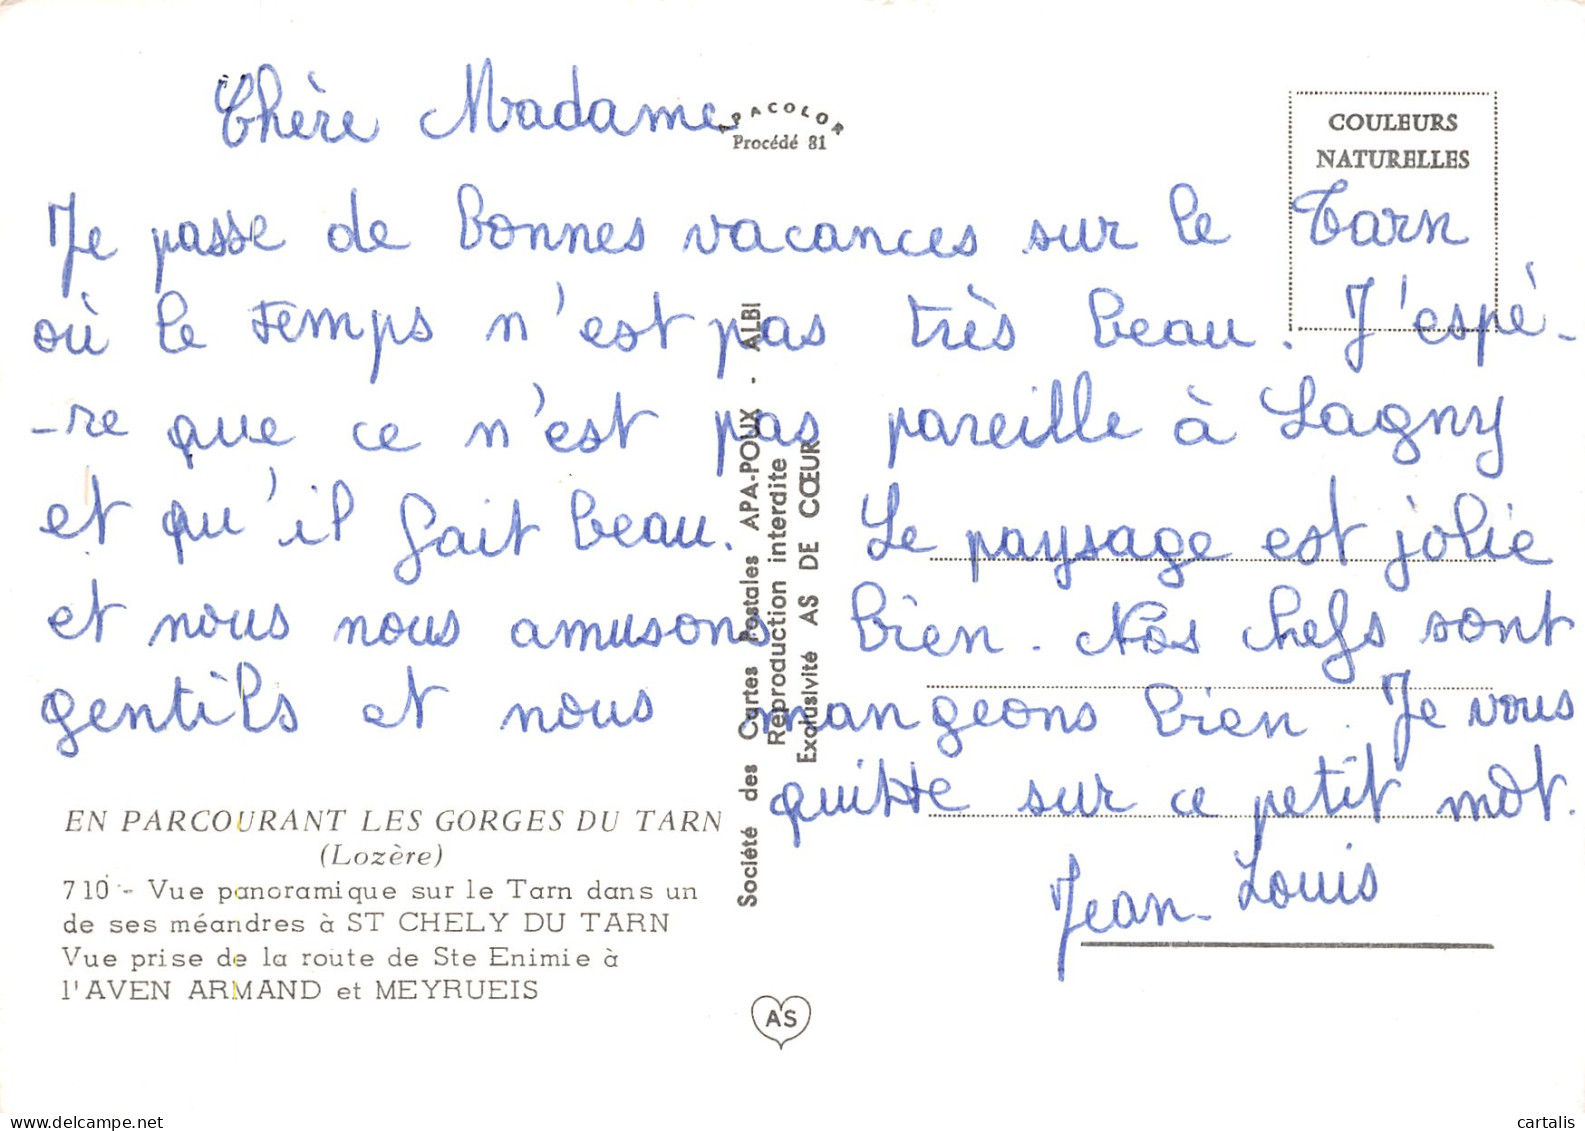 Chère Madame
APACOLOR
Procédé 81
COULEURS
NATURELLES
Je passe de bonnes vacances sur le Tarn
où le temps n'est pas très beau. J'espé-
-re que ce n'est pas pareille à Lagny
et qu'il fait beau. Le paysage est jolie
et nous nous amusons bien. Nos chefs sont
gentils et nous mangeons bien. Je vous
quitte sur ce petit mot.
Jean-Louis
EN PARCOURANT LES GORGES DU TARN
(Lozère)
710 - Vue panoramique sur le Tarn dans un
de ses méandres à ST CHELY DU TARN
Vue prise de la route de Ste Enimie à
l'AVEN ARMAND et MEYRUEIS
Société des Cartes Postales APA-POUX - ALBI
Reproduction interdite
Exclusivité AS DE CŒUR
AS
www.delcampe.net
cartalis